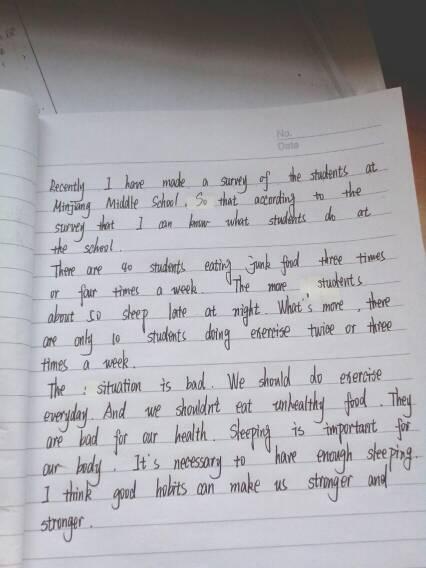 No.
Date
Recently I have made a survey of the students at
Minjiang Middle School. So that according to the
survey that I can know what students do at
the school.
There are 40 students eating junk food three times
or four times a week. The more students
about 50 sleep late at night. What's more, there
are only 10 students doing exercise twice or three
times a week.
The situation is bad. We should do exercise
everyday. And we shouldn't eat unhealthy food. They
are bad for our health. Sleeping is important for
our body. It's necessary to have enough sleeping.
I think good habits can make us stronger and
stronger.